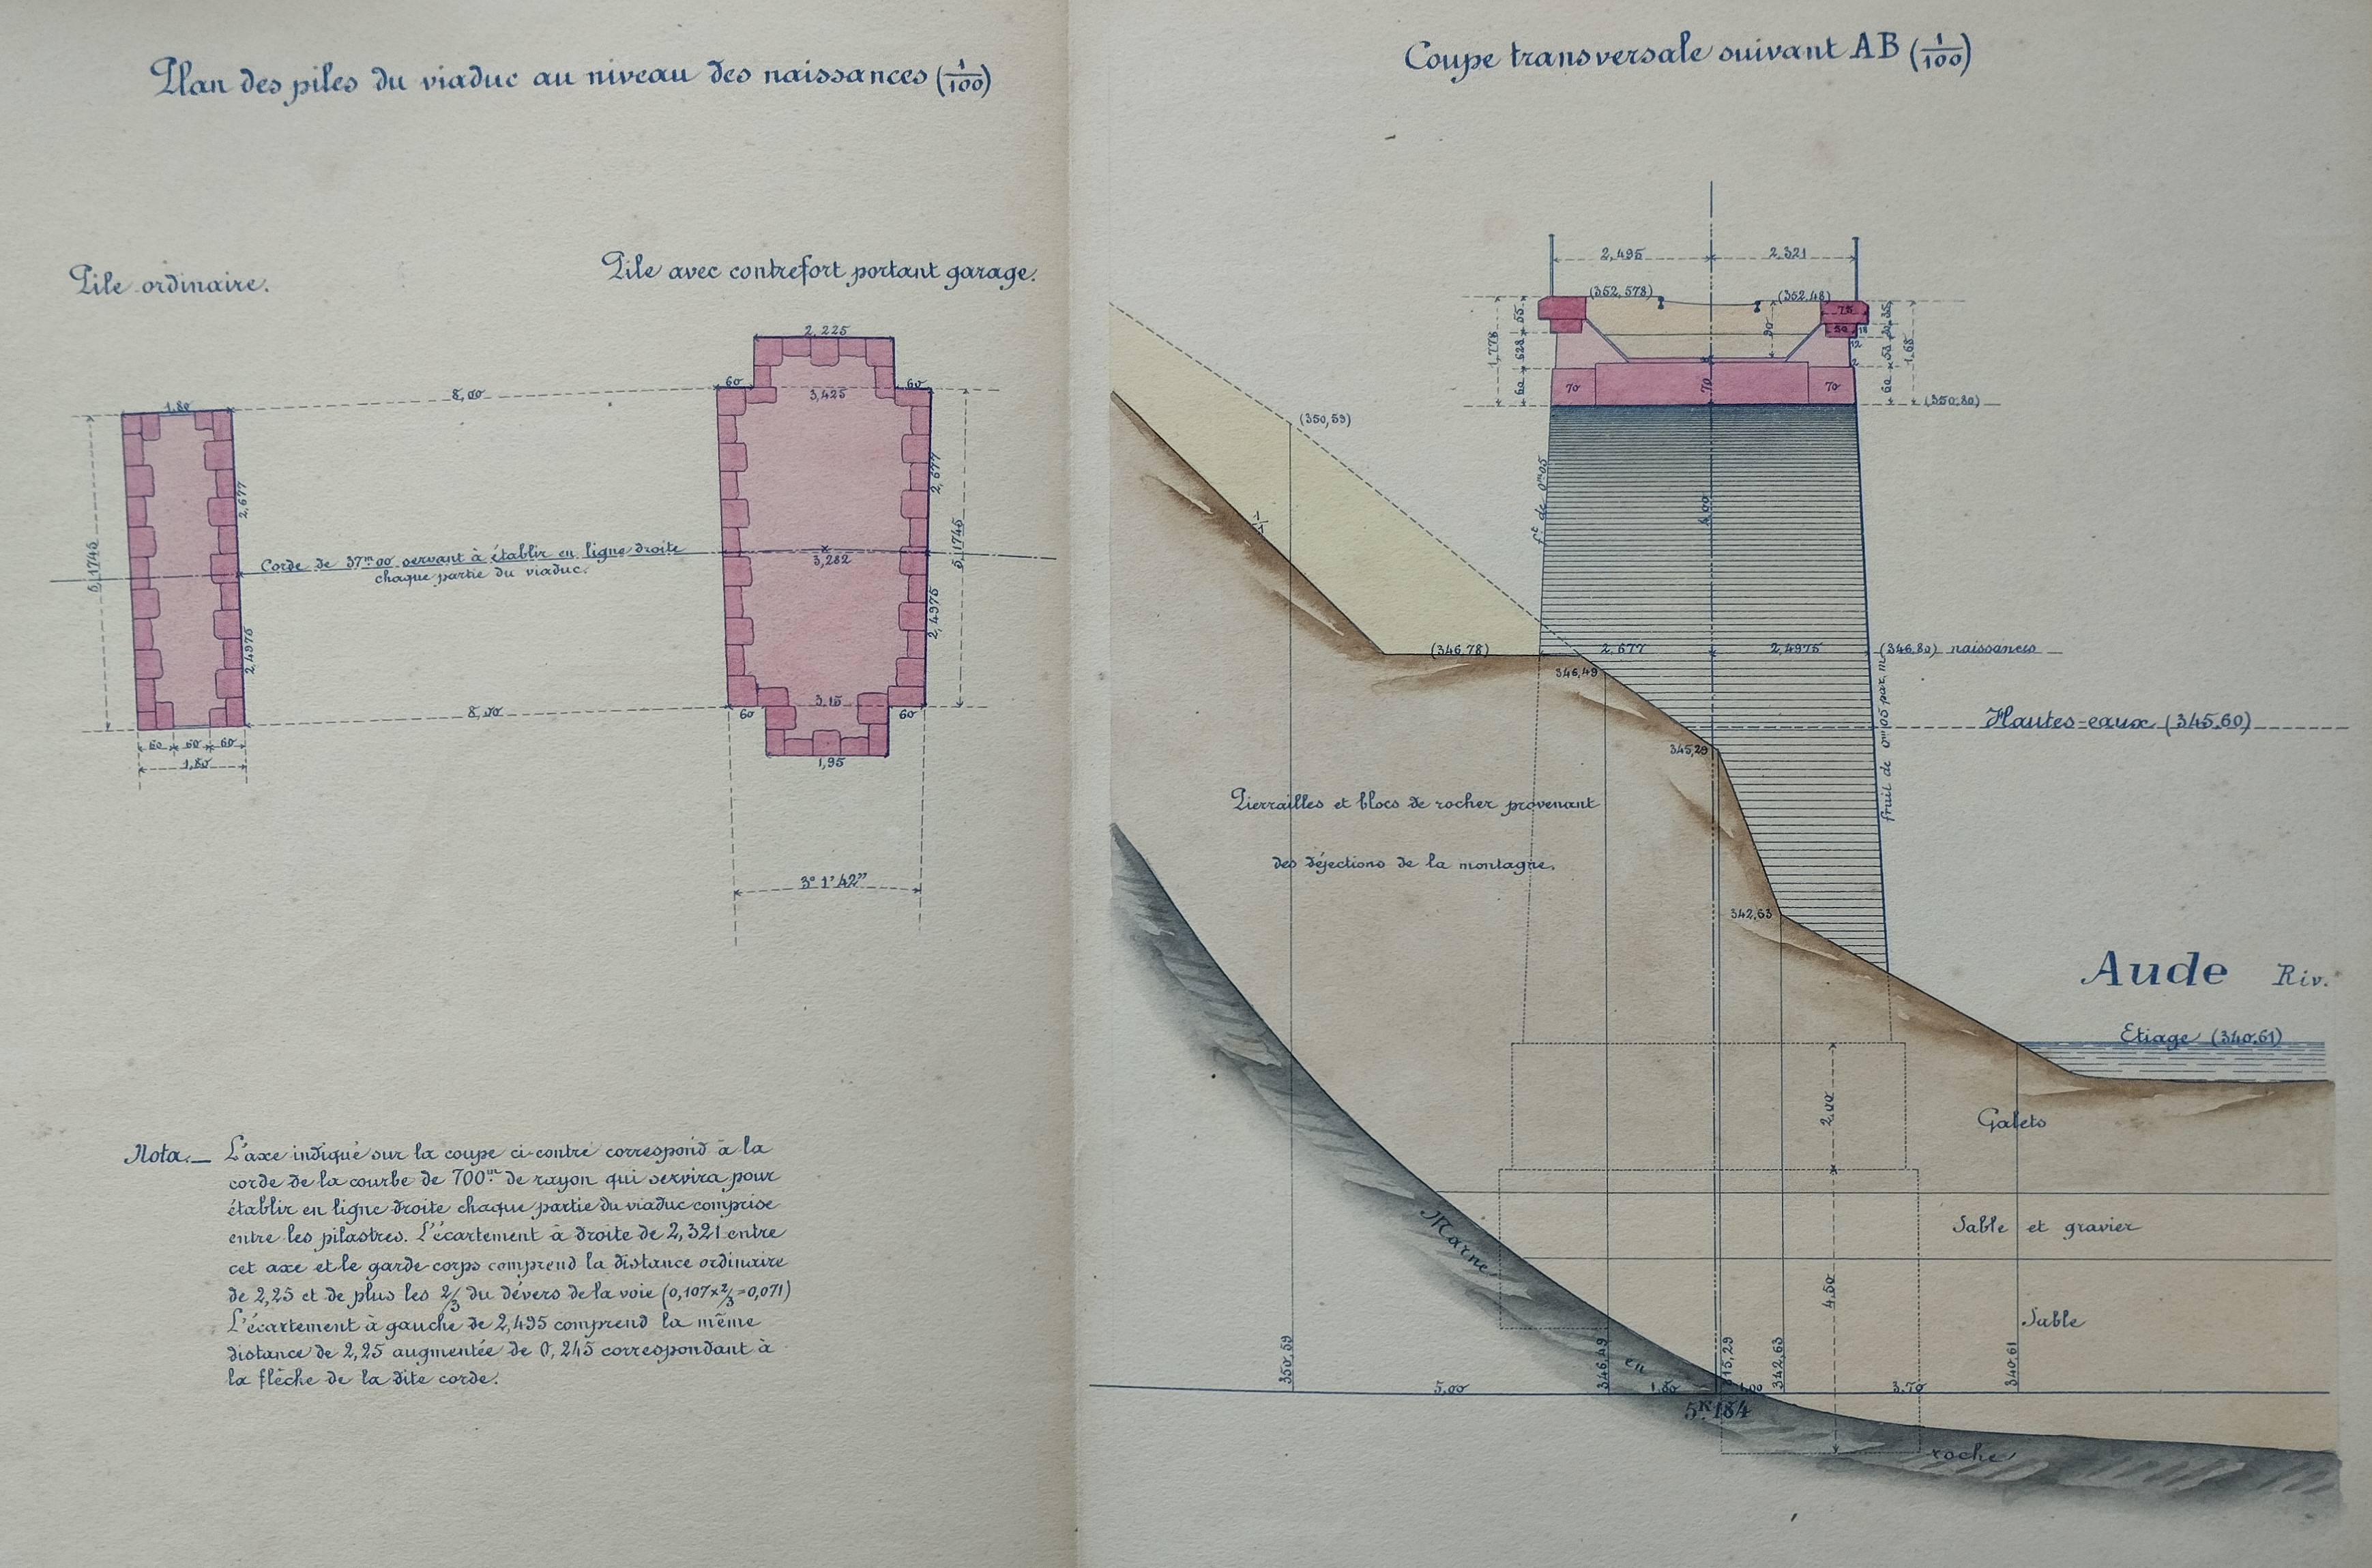 Plan des piles du viaduc au niveau des naissances (1/100)
Pile ordinaire.
Pile avec contrefort portant garage.
2,225
60
60
3,425
8,00
1,80
2,677
2,677
5,1745
5,1745
Corde de 37m00 servant à établir en ligne droite
chaque partie du viaduc.
3,282
2,4975
2,4975
8,00
3,15
60
60
1,95
60
60
60
1,80
3° 1' 42"
Nota._ L'axe indiqué sur la coupe ci-contre correspond à la
corde de la courbe de 700m. de rayon qui servira pour
établir en ligne droite chaque partie du viaduc comprise
entre les pilastres. L'écartement à droite de 2,321 entre
cet axe et le garde-corps comprend la distance ordinaire
de 2,25 et de plus les 2/3 du dévers de la voie (0,107×2/3=0,071)
L'écartement à gauche de 2,495 comprend la même
distance de 2,25 augmentée de 0,245 correspondant à
la flèche de la dite corde.
Coupe transversale suivant AB (1/100)
2,495
2,321
(352,578)
(352,48)
75
50
18
55
35
90
12
1,778
628
53
1,68
2
60
60
70
70
70
(350,80)
(350,59)
1/1
ft de 0m05
4,00
(346,78)
2,677
2,4975
(346,80) naissances
346,49
Hautes-eaux (345,60)
345,29
fruit de 0m05 par m
Pierrailles et blocs de rocher provenant
des déjections de la montagne.
342,63
Aude Riv.
Etiage (340,61)
2,00
Galets
Sable et gravier
Marne
4,50
Sable
350,59
346,49
en
345,29
342,63
340,61
5,00
1,80
1,00
3,70
5K184
roche